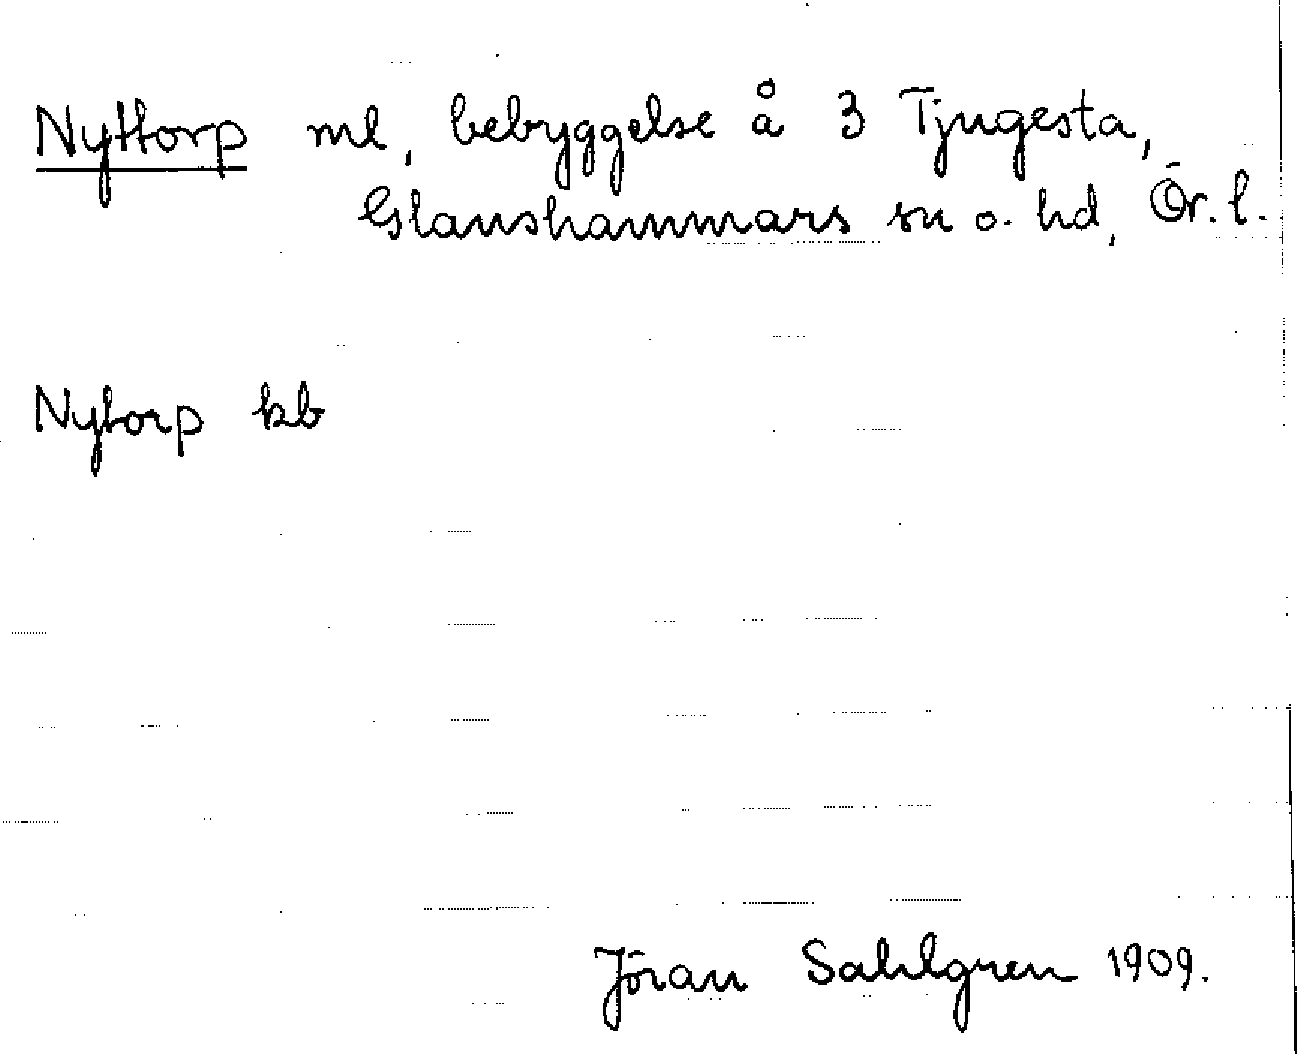 Nyttorp ml, bebyggelse å 3 Tjugesta,
Glanshammars sn o. hd, Ör. l.
Nytorp kb
Jöran Sahlgren 1909.